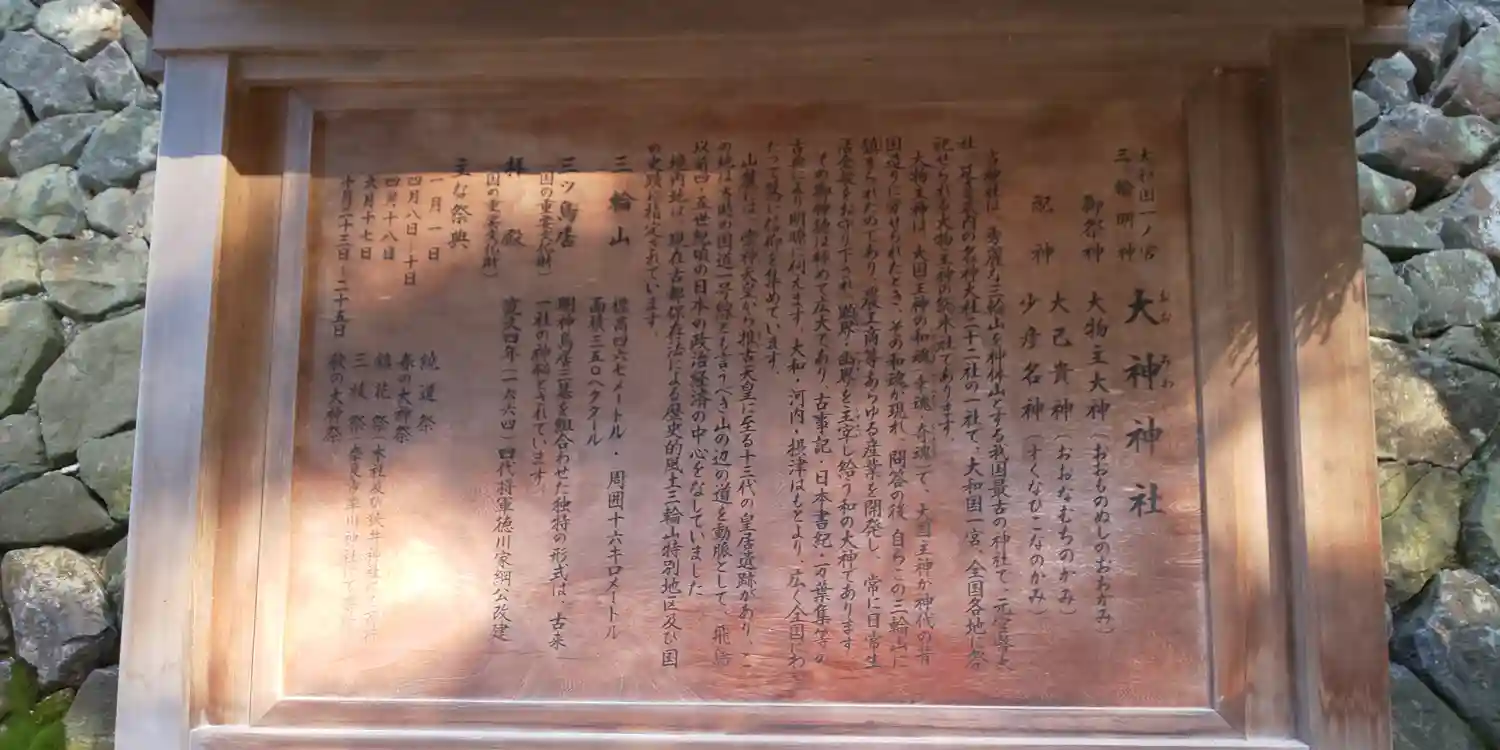 大和国一ノ宮
三輪明神
大神神社
おお みわ
御祭神 大物主大神(おおものぬしのおおかみ)
配神 大己貴神(おおなむちのかみ)
少彦名神(すくなひこなのかみ)
当神社は、秀麗な三輪山を神体山とする我国最古の神社で、元官幣大
社・延喜式内の名神大社・二十二社の一社で、大和国一宮、全国各地に祭
祀せられる大物主神の総本社であります。
大物主神は、大国主神の和魂(幸魂・奇魂)で、大国主神が神代の昔
国造りに寄せられたとき、その和魂が現れ、問答の後、自らこの三輪山に
鎮まられたのであり、農工商等あらゆる産業を開発し、常に日常生
活全般をお守り下され、顕界・幽界を主宰し給う和の大神であります
その御神徳は極めて広大であり、古事記・日本書紀・万葉集等の
古典により明瞭に伺えます。大和・河内・摂津はもとより、広く全国にわ
たって篤い信仰を集めています。
山麓には、崇神天皇から推古天皇に至る十三代の皇居遺跡があり、こ
の地は、当時の国道一号線とも言うべき山の辺の道を動脈として、飛鳥
以前四・五世紀頃の日本の政治経済の中心をなしていました
境内地は、現在古都保存法による歴史的風土三輪山特別地区及び国
の史跡に指定されています。
三輪山 標高四六七メートル・周囲十六キロメートル
面積三五〇ヘクタール
三ツ鳥居 明神鳥居三基を組合わせた独特の形式は、古来
(国の重要文化財) 一社の神秘とされています。
拝殿 寛文四年(一六六四)四代将軍徳川家綱公改建
(国の重要文化財)
主な祭典
一月一日 繞道祭
四月八日―十日 春の大神祭
四月十八日 鎮花祭(本社及び狭井神社
六月十七日 三枝祭(奈良市率川神社にて
十月二十三日―二十五日 秋の大神祭